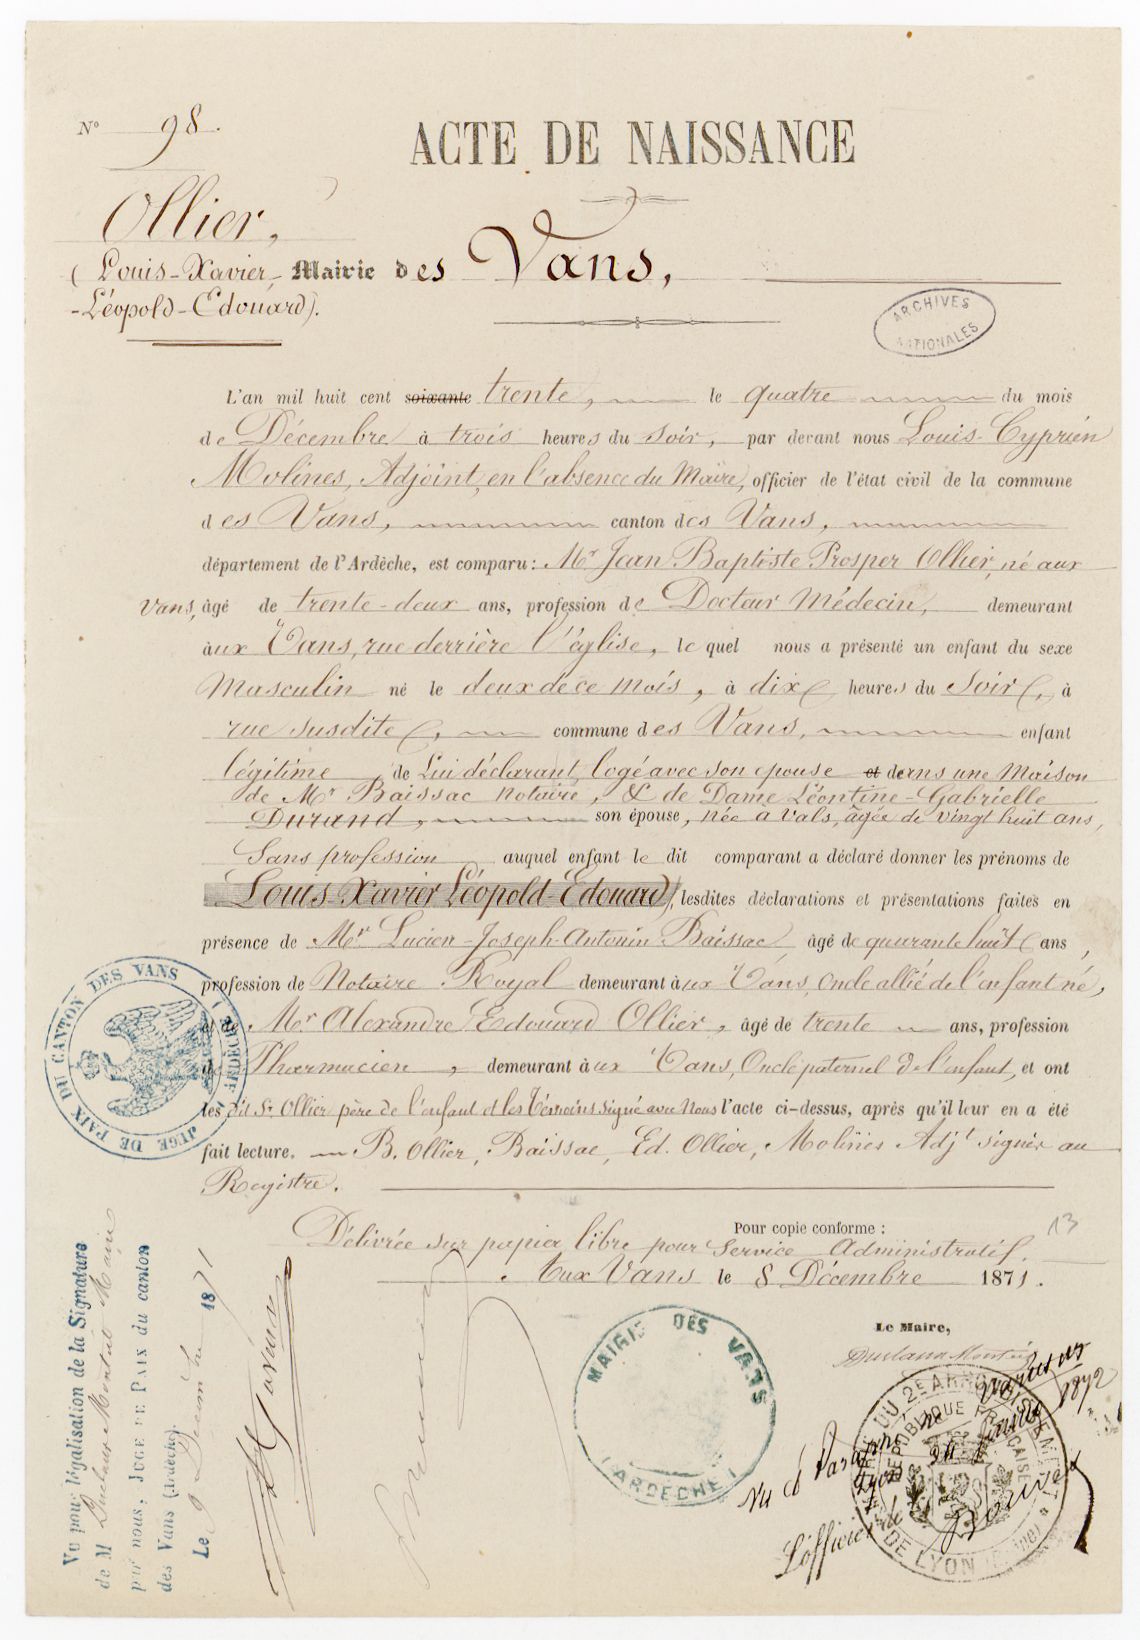 N° 98.
ACTE DE NAISSANCE
Ollier,
(Louis-Xavier,-
-Léopold-Edouard).
Mairie des Vans,
ARCHIVES NATIONALES
L'an mil huit cent soixante trente, le quatre du mois
de Décembre à trois heures du soir, par devant nous Louis-Cyprien
Molines, Adjoint, en l'absence du Maire, officier de l'état civil de la commune
des Vans, canton des Vans,
département de l'Ardèche, est comparu: Mr Jean Baptiste Prosper Ollier, né aux
Vans, âgé de trente-deux ans, profession de Docteur Médecin, demeurant
àux Vans, rue derrière l'église, le quel nous a présenté un enfant du sexe
Masculin né le deux de ce mois, à dix heures du Soir, à
rue susdite, commune des Vans, enfant
légitime, de Lui déclarant, logé avec son épouse et dans une Maison
de Mr Baissac notaire, & de Dame Léontine-Gabrielle
Durand, son épouse, née à Vals, âgée de vingt huit ans,
Sans profession auquel enfant le dit comparant a déclaré donner les prénoms de
Louis Xavier Léopold-Edouard, lesdites déclarations et présentations faites en
présence de Mr Lucien-Joseph-Antonin Baissac, âgé de quarante huit ans,
profession de Notaire Royal demeurant àux Vans, oncle allié de l'enfant né,
et de Mr Alexandre Edouard Ollier, âgé de trente ans, profession
de Pharmacien, demeurant àux Vans, Oncle paternel de l'enfant, et ont
les dit Sr Ollier père de l'enfant et les Témoins signé avec Nous l'acte ci-dessus, après qu'il leur en a été
fait lecture. B. Ollier, Baissac, Ed. Ollier, Molines Adjt signés au
Registre.
JUGE DE PAIX DU CANTON DES VANS (ARDÈCHE)
Pour copie conforme :
13
Délivrée sur papier libre pour Service Administratif.
Aux Vans le 8 Décembre 1871.
Le Maire,
Duclaux Monteil
MAIRIE DES VANS
(ARDECHE)
Vu pour légalisation de la Signature
de M Duclaux Monteil Maire
par nous, JUGE DE PAIX du canton
des Vans (Ardèche)
Le 9 Décembre 1871
MAIRIE DU 2E ARRONDISSEMENT DE LYON (RHÔNE)
RÉPUBLIQUE FRANÇAISE
Vu & Paraphé ne varietur
Lyon 1872
L'officier de